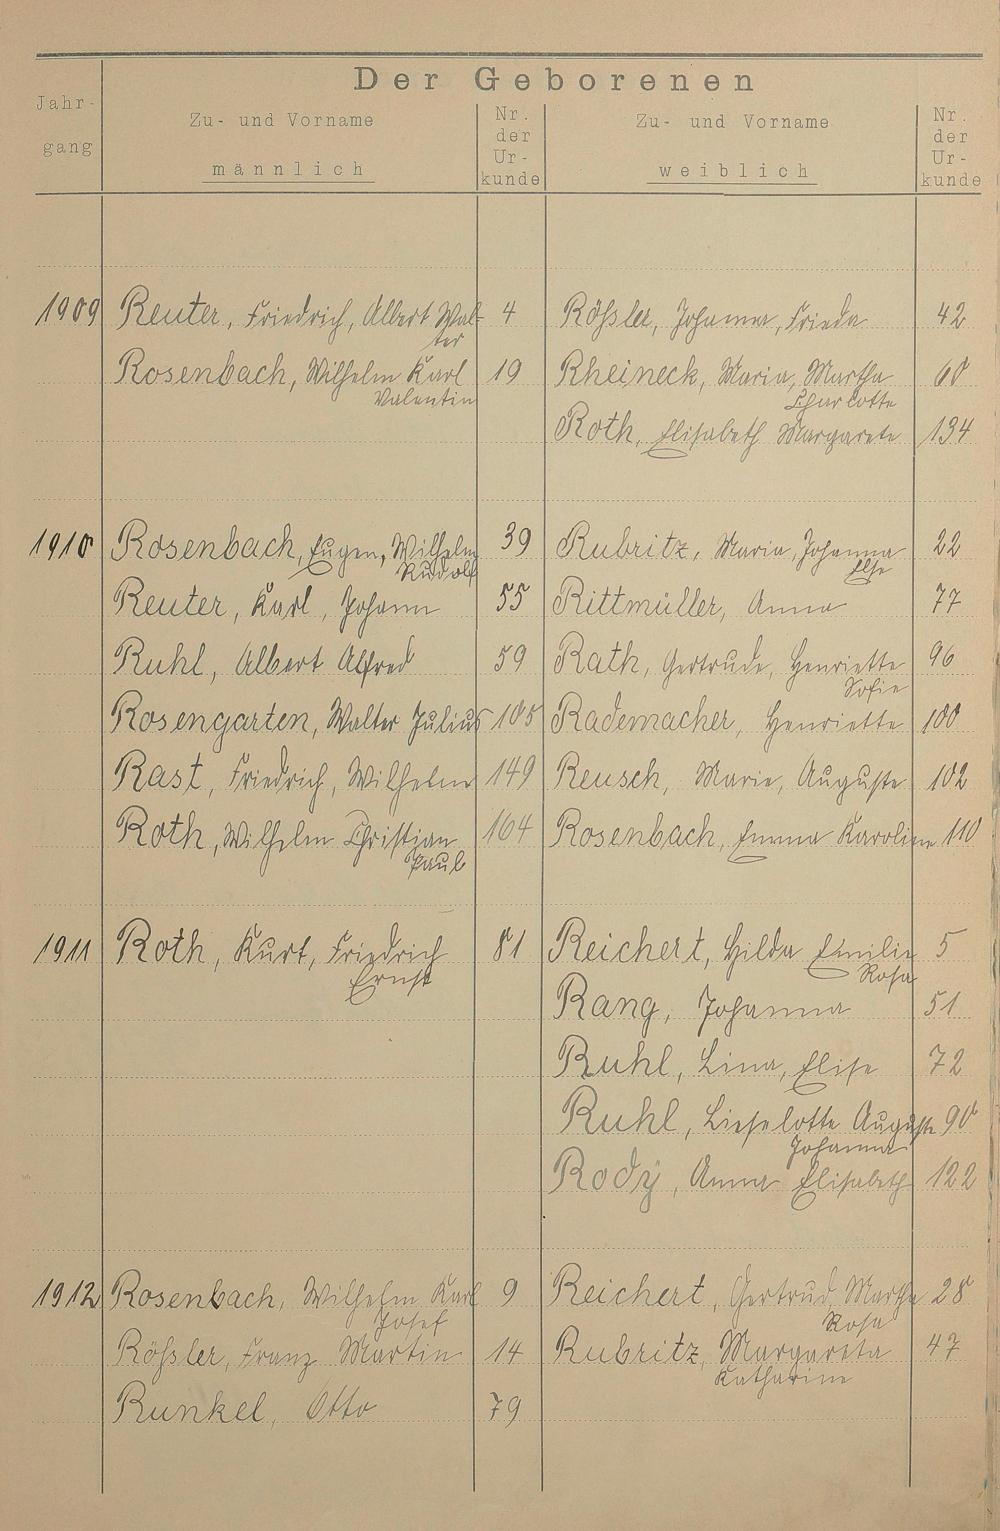 Der Geborenen
Jahr-
gang
Zu- und Vorname
männlich
Nr.
der
Ur-
kunde
Zu- und Vorname
weiblich
Nr.
der
Ur-
kunde
1909 Reuter, Friedrich, Albert Wal- 4 Rößler, Johanna, Frieda 42
ter
Rosenbach, Wilhelm Karl 19 Rheineck, Maria, Martha 60
Valentin Charlotte
Roth, Elisabeth Margarete 134
1910 Rosenbach, Eugen, Wilhelm 39 Rubritz, Maria, Johanna 22
Rudolf Else
Reuter, Karl, Johann 55 Rittmüller, Anna 77
Ruhl, Albert Alfred 59 Rath, Gertrude, Henriette 96
Sofie
Rosengarten, Walter Julius 105 Rademacher, Henriette 100
Rast, Friedrich, Wilhelm 149 Reusch, Marie, Auguste 102
Roth, Wilhelm Christian 164 Rosenbach, Emma Karoline 110
Paul
1911 Roth, Kurt, Friedrich 81 Reichert, Hilda Emilie 5
Ernst Rosa
Rang, Johanna 51
Ruhl, Lina, Elise 72
Ruhl, Lieselotte Auguste 90
Johanna
Rody, Anna Elisabeth 122
1912 Rosenbach, Wilhelm Karl 9 Reichert, Gertrud Martha 28
Josef Rosa
Rößler, Franz Martin 14 Rubritz, Margareta 47
Katharine
Runkel, Otto 79